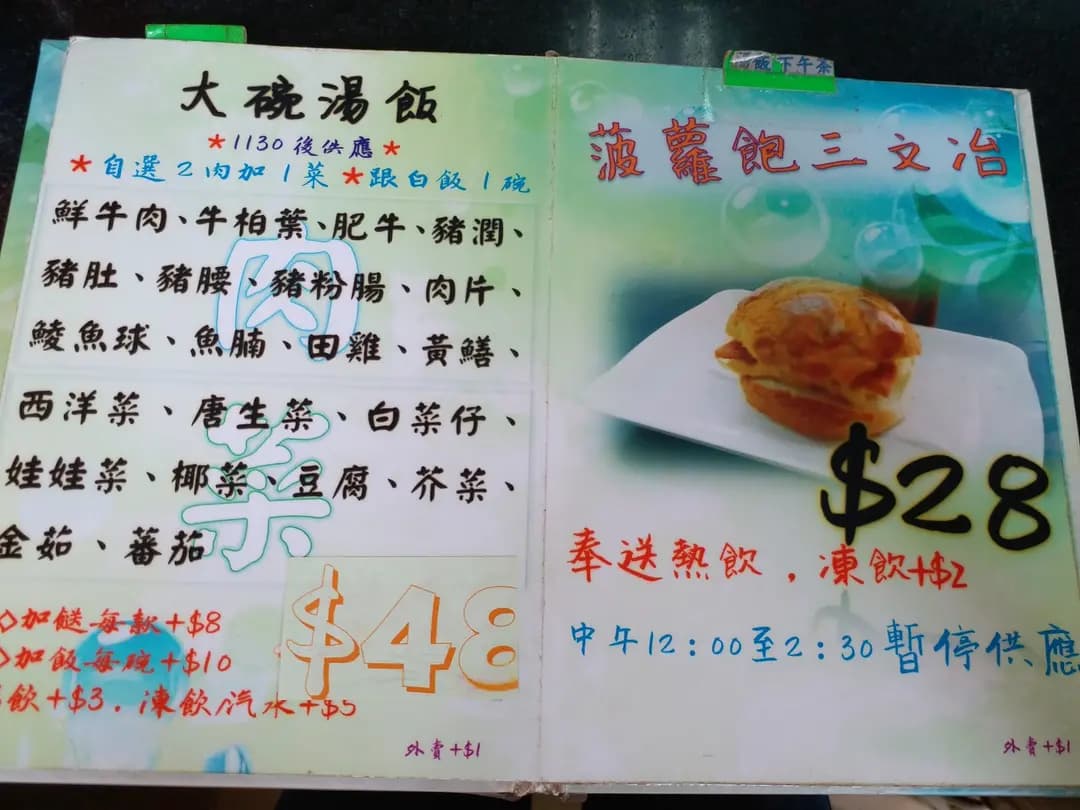 大碗湯飯
*1130後供應*
*自選2肉加1菜*跟白飯1碗
肉
鮮牛肉、牛柏葉、肥牛、豬潤、
豬肚、豬腰、豬粉腸、肉片、
鯪魚球、魚腩、田雞、黃鱔、
菜
西洋菜、唐生菜、白菜仔、
娃娃菜、椰菜、豆腐、芥菜、
金茹、蕃茄
$48
◇加餸每款+$8
◇加飯每碗+$10
飲+$3.凍飲/汽水+$5
外賣+$1
下午茶
菠蘿飽三文冶
$28
奉送熱飲,凍飲+$2
中午12:00至2:30暫停供應
外賣+$1